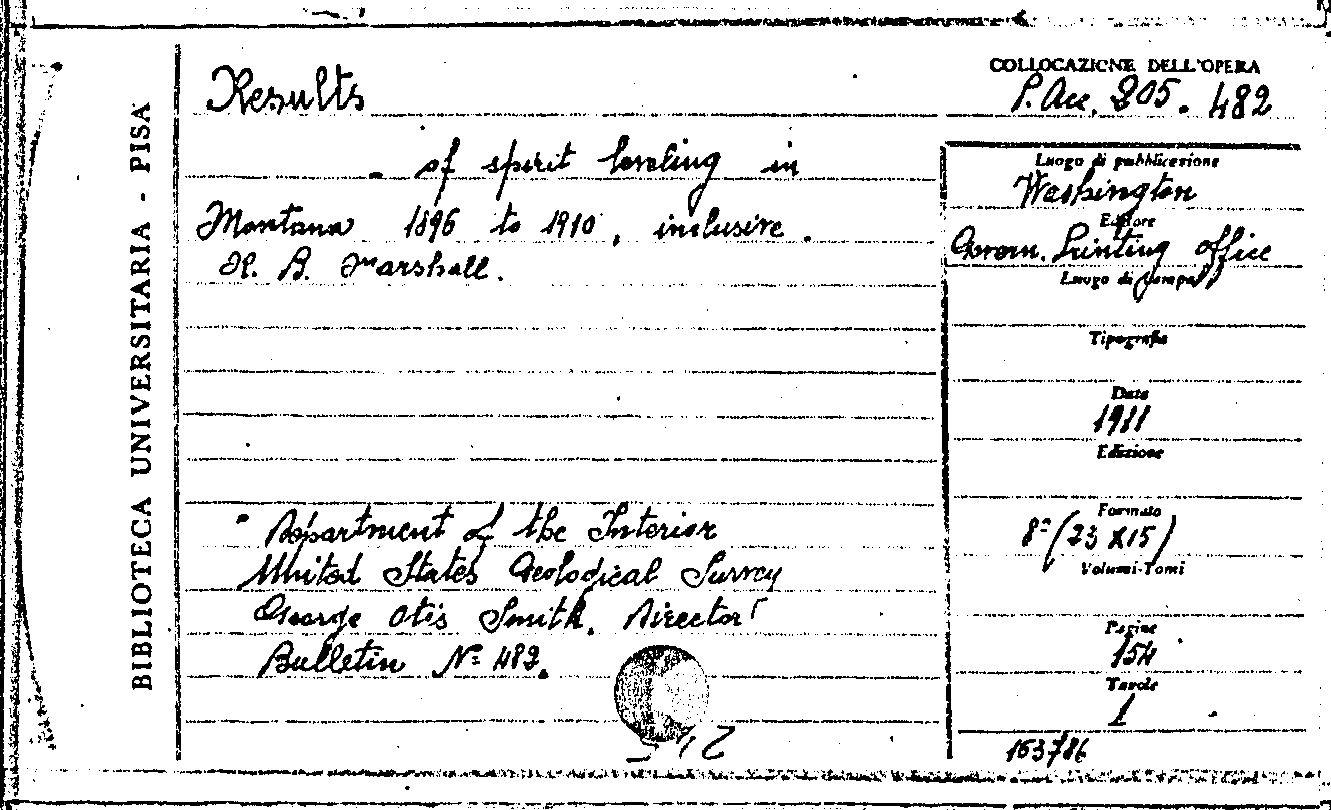 BIBLIOTECA UNIVERSITARIA - PISA
Results
of spirit leveling in
Montana 1896 to 1910, inclusive.
R. B. Marshall.
Department of the Interior
United States Geological Survey
George Otis Smith, Director
Bulletin N° 482.
COLLOCAZIONE DELL'OPERA
P. Acc. 805. 482
Luogo di pubblicazione
Washington
Editore
Govern. Printing Office
Luogo di stampa
Tipografia
Data
1911
Edizione
Formato
8° (23 X 15)
Volumi-Tomi
Pagine
154
Tavole
1
153786